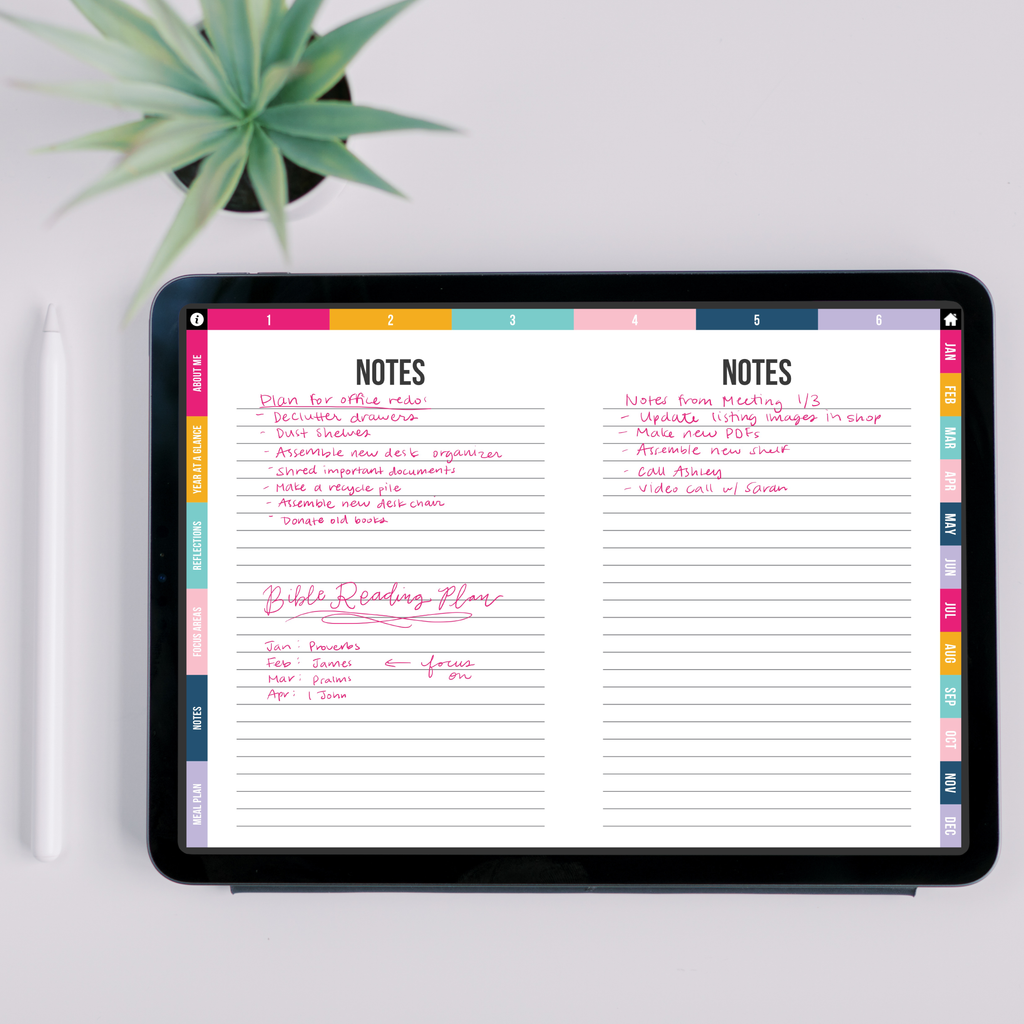 1 2 3 4 5 6
ABOUT ME
YEAR AT A GLANCE
REFLECTIONS
FOCUS AREAS
NOTES
MEAL PLAN
NOTES
Plan for office redo:
- Declutter drawers
- Dust shelves
- Assemble new desk organizer
- Shred important documents
- Make a recycle pile
- Assemble new desk chair
- Donate old books
Bible Reading Plan
Jan: Proverbs
Feb: James ← focus
on
Mar: Psalms
Apr: 1 John
NOTES
Notes from Meeting 1/3
- Update listing images in shop
- Make new PDFs
- Assemble new shelf
- Call Ashley
- Video call w/ Sarah
JAN
FEB
MAR
APR
MAY
JUN
JUL
AUG
SEP
OCT
NOV
DEC